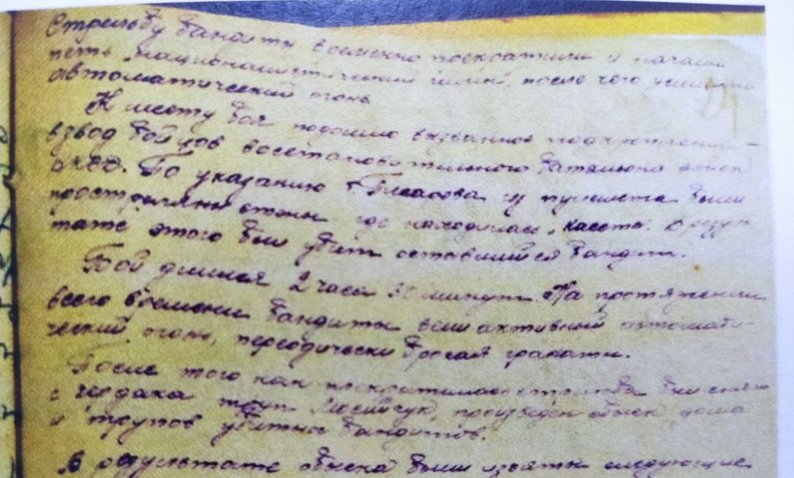 Стрельбу бандиты временно прекратили и начали
петь националистический гимн, после чего усилили
автоматический огонь
К месту боя подошло вызванное подкрепление -
взвод бойцов восстановительного батальона войск
НКВД. По указанию т. из пулемета были
прострелены стены где находилась . В резуль
тате этого был убит оставшийся бандит.
Бой длился 2 часа 30 минут. На протяжении
всего времени бандиты вели активный автомати-
ческий огонь, переодически бросая гранаты.
После того как прекратилась стрельба был снят
с чердака труп Мосийчук, произведен обыск дома
и трупов убитых бандитов.
В результате обыска были изъяты следующие